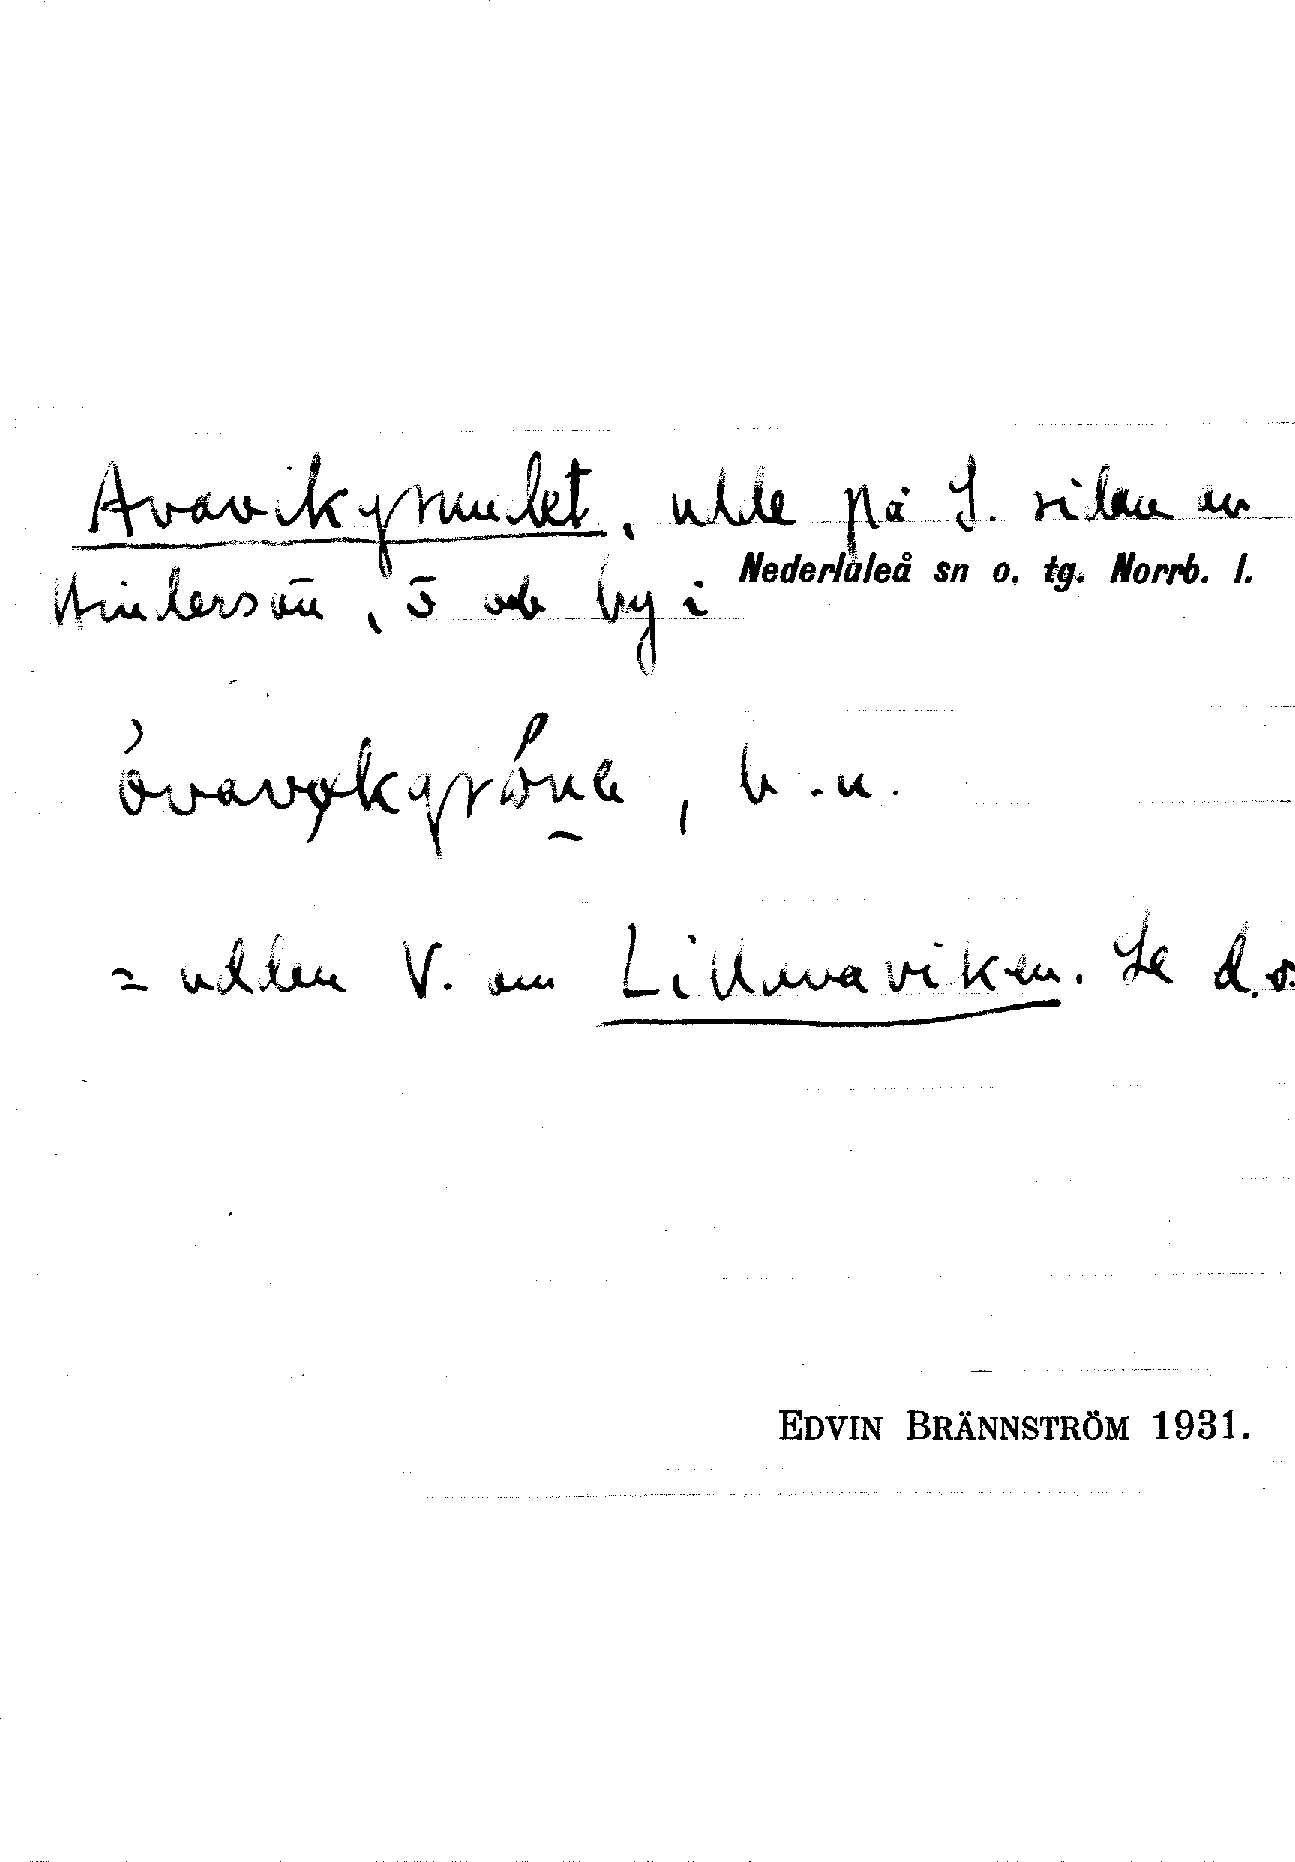 Avavikgrundet, udde på S. sidan av
Hindersön, ö och by i Nederluleå sn o. tg. Norrb. l.
b. n.
= udden V. om Lillavaviken. Se d.o.
EDVIN BRÄNNSTRÖM 1931.